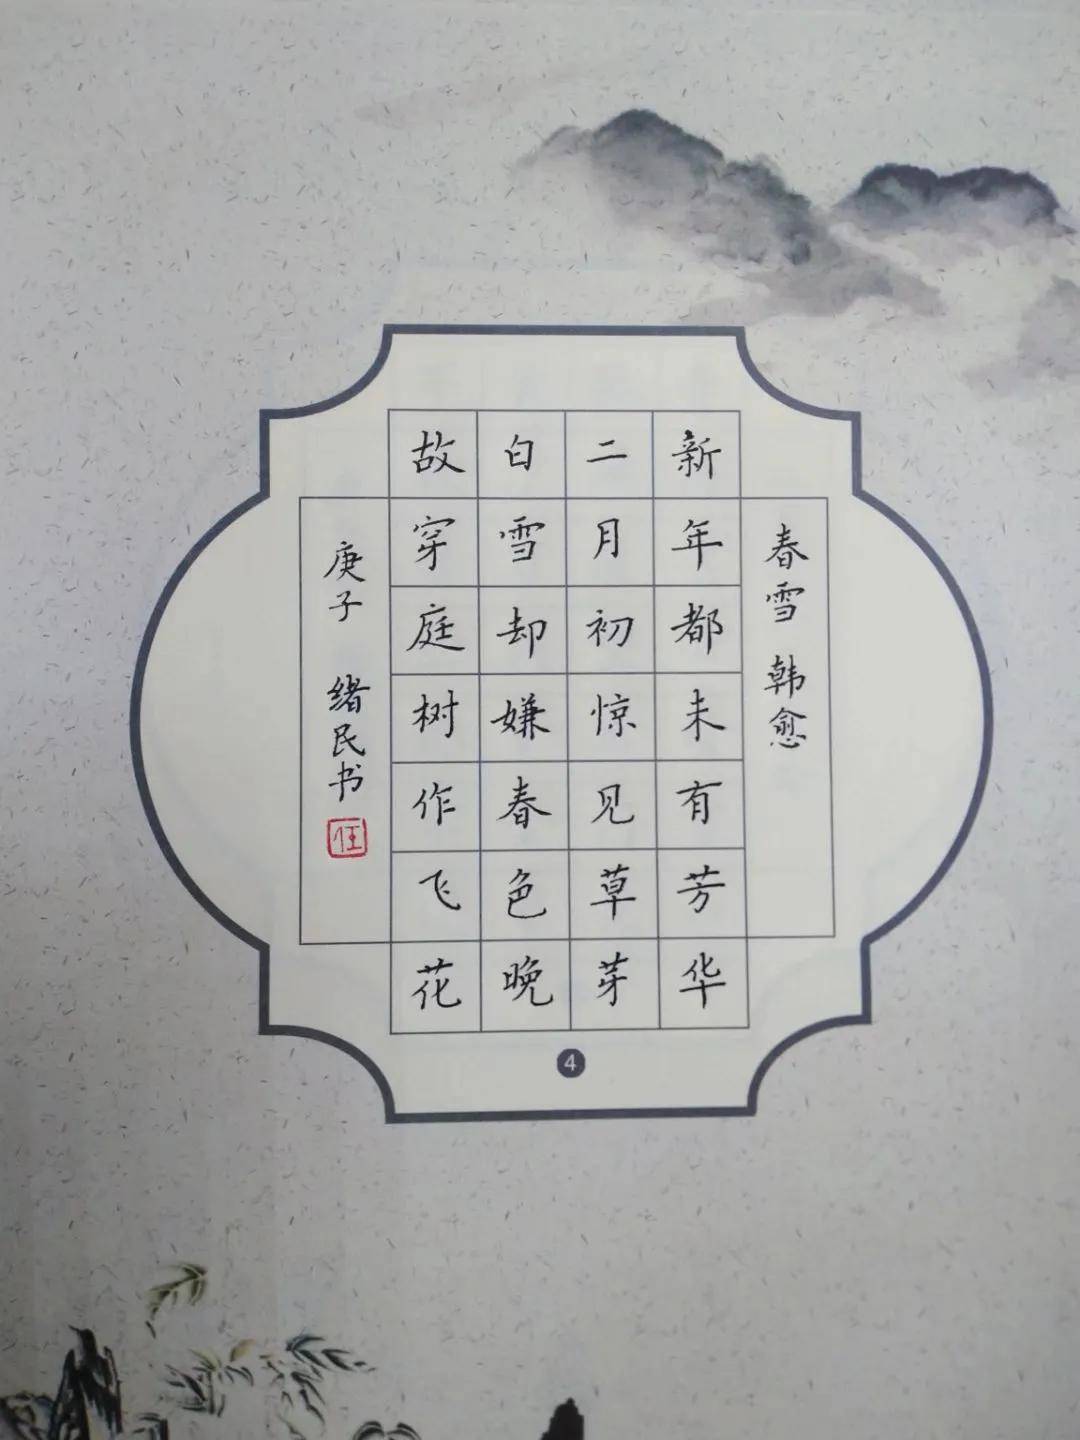 春雪 韩愈
新年都未有芳华
二月初惊见草芽
白雪却嫌春色晚
故穿庭树作飞花
庚子 绪民书
任
4